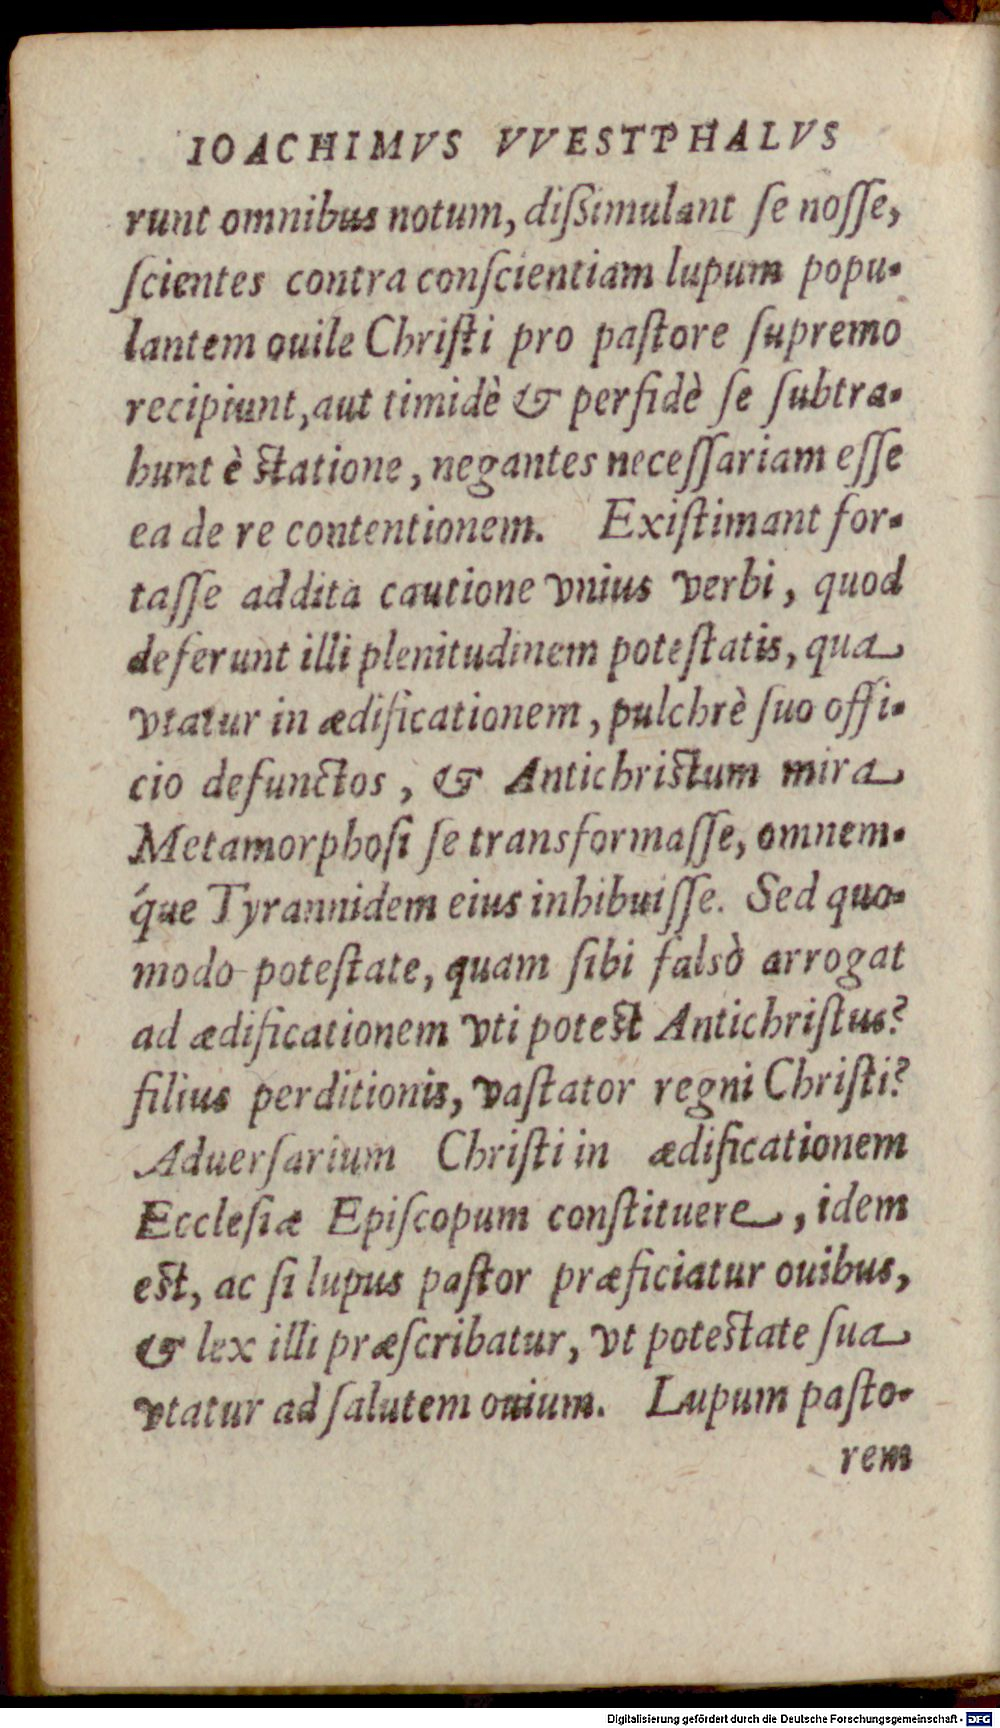 IOACHIMVS VVESTPHALVS
runt omnibus notum, diſsimulant ſe noſſe,
ſcientes contra conſcientiam lupum popu-
lantem ouile Chriſti pro paſtore ſupremo
recipiunt, aut timidè & perfidè ſe ſubtra-
hunt è ſtatione, negantes neceſſariam eſſe
ea de re contentionem. Exiſtimant for-
taſſe addita cautione vnius verbi, quod
deferunt illi plenitudinem poteſtatis, qua
vtatur in ædificationem, pulchrè ſuo offi-
cio defunctos, & Antichriſtum mira
Metamorphoſi ſe transformaſſe, omnem-
q́ue Tyrannidem eius inhibuiſſe. Sed quo-
modo poteſtate, quam ſibi falsò arrogat
ad ædificationem vti poteſt Antichriſtus?
filius perditionis, vaſtator regni Chriſti?
Aduerſarium Chriſti in ædificationem
Eccleſiæ Epiſcopum conſtituere, idem
eſt, ac ſi lupus paſtor præficiatur ouibus,
& lex illi præſcribatur, vt poteſtate ſua
vtatur ad ſalutem ouium. Lupum paſto-
rem
Digitalisierung gefördert durch die Deutsche Forschungsgemeinschaft - DFG